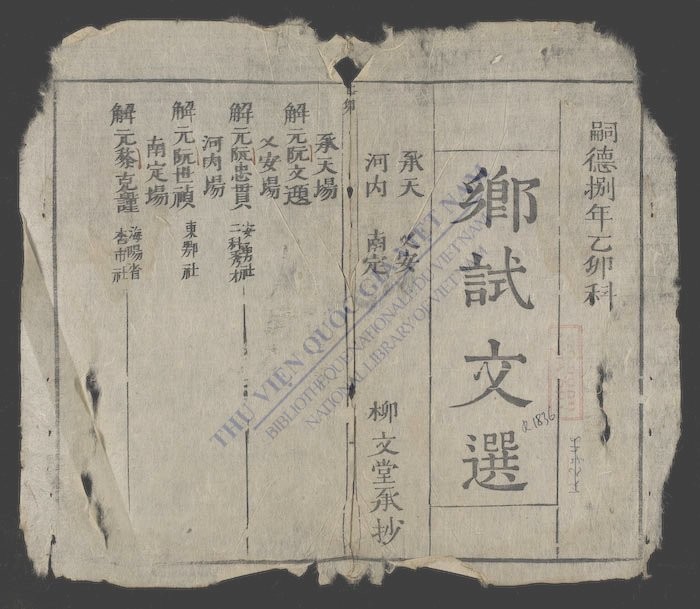 嗣德捌年乙卯科
鄉試文選
承天 乂安
河内 南定
柳文堂承抄
乙卯
承天場
解元阮文選
乂安場
解元阮忠貫
河内場
解元阮世禎 東鄂社
南定場
解元蔡克謹 海陽省
杏市社
R.1836
THƯ VIỆN QUỐC GIA VIỆT NAM
BIBLIOTHEQUE NATIONALE DU VIETNAM
NATIONAL LIBRARY OF VIETNAM